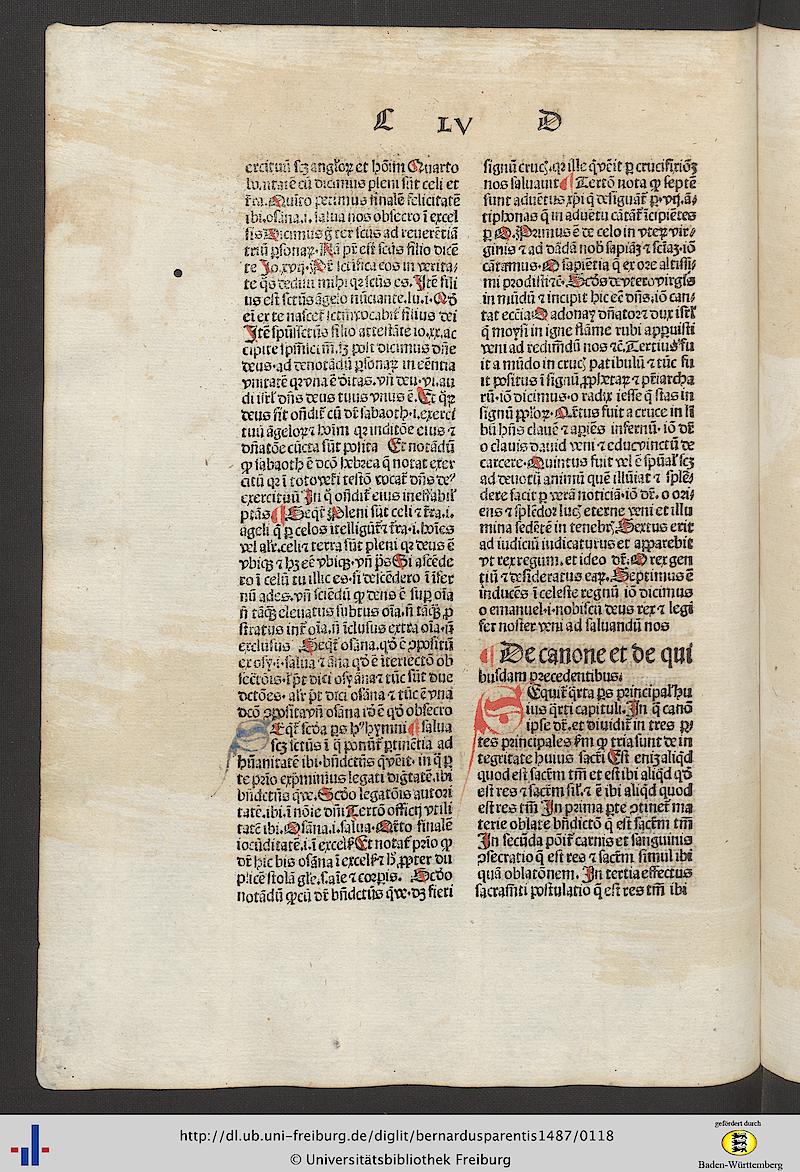 C LV D
ercituū scȝ angloꝝ et hoīm Quarto
lūtatē cū dicimus pleni sūt celi et
t̄ra. Quīto petimus finalē felicitatē
ibi. osāna .i. salua nos obsecro ī excel
sis Dicimus ḡ ter scūs ad reuerētiā
triū ꝑsonaꝝ. Nā pr̄ est scūs filio dicē
te Jo. xvij. Pr̄ scīfica eos in verita⸗
te q̄s dedisti mihi qꝛ scūs es. Jtē fili
us est sctūs āgelo nūciante. lu. i. Qđ
ei ex te nascet̄ sctm̄ vocabit̄ filius dei
Jtē spūssctūs filio attestāte io. xx. ac
cipite spm̄sctm̄. sȝ post dicimus dn̄e
deus. ad denotādū ꝑsonaꝝ in eēntia
vnitatē qꝛ vna ē ditas. vn̄ deu. vi. au
di isrl̄ dn̄s deus tuus vnus ē. Et qꝝ
deus sit ondit̄ cū dr̄ sabaoth .i. exerci
tuū āgeloꝝ ⁊ hoīm qꝛ inditōe eius ⁊
dn̄atōe cūcta sūt posita Et notādū
ꝙ sabaoth ē dcō hebrea q̄ notat exer
citū qꝛ ī toto veti testō vocat̄ dn̄s de⁹
exercituū Jn q̄ ondit̄ eius ineffabil'
ptās ¶ Seqt̄ Pleni sūt celi ⁊ t̄ra .i.
āgeli q̄ ꝑ celos ītelligūt̄ ⁊ t̄ra .i. hoīes
vel alr̄. celi ⁊ terra sūt pleni qꝛ deus ē
vbiqꝫ ⁊ hȝ eē vbiqꝫ. vn̄ ps̄ Si ascēde
ro ī celū tu illic es. si descēdero ī īfer
nū ades. vn̄ sciēdū ꝙ deus ē suꝑ oīa
n̄ tāqꝫ eleuatus subtus oīa. n̄ tāqꝫ ꝓ
stratus inť oīa. n̄ īclusus extra oīa. n̄
exclusus Seqt̄ osāna. qđ ē ꝯpositū
ex osy .i. salua ⁊ āna qđ ē īteriectō ob
secrōis. ⁊ pt̄ dici osyāna ⁊ tūc sūt due
dctōes. alr̄ pt̄ dici osāna ⁊ tūc ē vna
dcō ꝯposita vn̄ osāna idē ē qđ obsecro
SEqt̄ scđa ps h⁹ hymni ¶ salua
scȝ sctūs ī q̄ ponūt̄ ꝑtinētia ad
hūanitatē ibi. bn̄dctūs q̄ veīt. in q̄ ꝑ
te prīo exprimimus legati digtatē. ibi
bn̄dctūs q̄ ve. Scđo legatōis autori
tatē. ibi. ī noīe dn̄i Tertō officij vtili
tatē ibi. Osāna .i. salua. Qrto finalē
iocūditatē .i. ī excels̄ Et notat̄ prīo ꝙ
dr̄ hic bis osāna ī excels̄ ⁊ h̄ ꝓpter du
plicē stolā gl̄e. s. aīe ⁊ corꝑis. Scđo
notādū ꝙ cū dr̄ bn̄dctūs q̄ ve. dȝ fieri
signū cruc̄. qꝛ ille q̄ vēit ꝑ crucifixiōȝ
nos saluauit ¶ Tertō nota ꝙ septē
sunt aduētus xp̄i q̄ desiguāt̄ ꝑ. vij. ā⸗
tiphonas q̄ in aduētu cātāt̄ īcipiētes
ꝑ O. Primus ē de celo in vteꝝ vir⸗
ginis ⁊ ad dādā nob̄ sapiāȝ ⁊ sciāȝ. iō
cātamus. O sapiētia q̄ ex ore altissi⸗
mi prodisti ⁊c̄. Scđs de vtero virgīs
in mūdū ⁊ incipit hic eē dn̄s. iō can⸗
tat eccīa O adonay dn̄ator ⁊ dux isrl̄
q̄ moysi in igne flāme rubi apparuisti
veni ad redimēdū nos ⁊c̄. Tertius fu
it a mūdo in cruc̄ patibulū ⁊ tūc fu
it positus ī signū ꝓphetaꝝ ⁊ pr̄iarcha
rū. iō dicimus. o radix iesse q̄ stas in
signū ppłoꝝ. Qrtus fuit a cruce in lī
bū hn̄s clauē ⁊ aꝑiēs infernū. iō dr̄
o clauis dauid veni ⁊ educ vinctū de
carcere. Quintus fuit vel ē spūal' scȝ
ad deuotū animū quē illūiat ⁊ splē⸗
dere facit ꝑ verā noticiā. iō dr̄. o ori⸗
ens ⁊ splēdor luc̄ eterne veni et illu
mina sedētē in tenebr̄. Sextus erit
ad iudiciū iudicaturus et apparebit
vt rex regum. et ideo dr̄. O rex gen
tiū ⁊ desideratus eaꝝ. Septimus ē
inducēs ī celeste regnū iō dicimus
o emanuel .i. nobiscū deus rex ⁊ legi
fer noster veni ad saluandū nos
¶ De canone et de qui
busdam precedentibus.
SEquit̄ q̄rta ps principal' hu
ius q̄rti capituli. Jn q̄ canō
ipse dr̄. et diuidit̄ in tres ꝑ
tes principales ſm ꝙ tria sunt de in
tegritate huius sacr̄i Est eniȝ aliqd
quod est sacr̄m tm̄ et est ibi aliqd qđ
est res ⁊ sacr̄m sil'. ⁊ ē ibi aliqd quod
est res tm̄ Jn prima ꝑte ꝯtinet̄ ma
terie oblate bn̄dictō q̄ est sacr̄m tm̄
Jn secūda pōit̄ carnis et sanguinis
ꝯsecratio q̄ est res ⁊ sacr̄m simul ibi
quā oblatōnem. Jn tertia effectus
sacram̄ti postulatio q̄ est res tm̄ ibi
http://dl.ub.uni-freiburg.de/diglit/bernardusparentis1487/0118
© Universitätsbibliothek Freiburg
gefördert durch
Baden-Württemberg